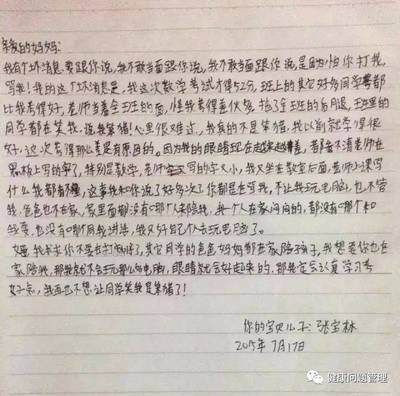 亲爱的妈妈:
我有个坏消息要跟你说,我不敢当面跟你说,我不敢当面跟你说,是因为怕你打我,
骂我!我的这个坏消息是,我这次数学考试才得52分,班上的其它好多同学都
比我考得好,老师当着全班的面,怪我考得差伙多,拖了全班的后腿,班里的
同学都在笑我,说我笨猪!心里很难过,我真的不是笨猪,我以前就学得很
好,这次考得那么差是有原因的,因为我的眼睛现在越来越差,都看不清老师在
黑板上写的字了,特别是数学,老师写的字又小,我又坐在教室后面,老师上课写
什么我都看不懂,这事我和你说了好多次了你都是在骂我,不让我玩电脑,也不管
我,爸爸也不在家,家里面都没有哪个来陪我,我一个人在家闷闷的,都没有哪个和
我耍,也没有哪个跟我讲话,我又好自己个人去玩电脑了。
妈,我求你不要去打麻将了,其它同学的爸爸妈妈都在家陪孩子,我想要你也在
家陪我,那我就不会玩那么多电脑,眼睛就会好起来的,那我定会认真学习考
好点,我再也不想让同学笑我是笨猪了!
你的宝贝儿子:张宝林
2015年7月17日
健康问题管理